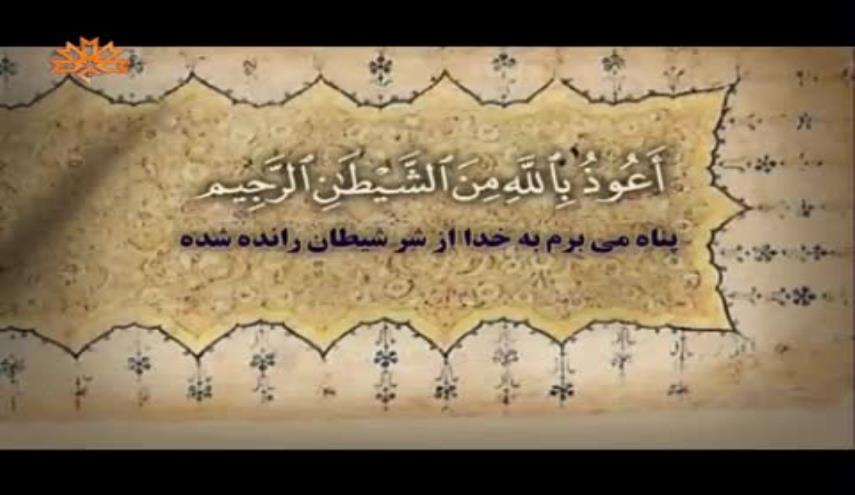 أَعُوذُ بِٱللَّهِ مِنَ ٱلشَّيْطَٰنِ ٱلرَّجِيمِ
پناه می برم به خدا از شر شیطان رانده شده